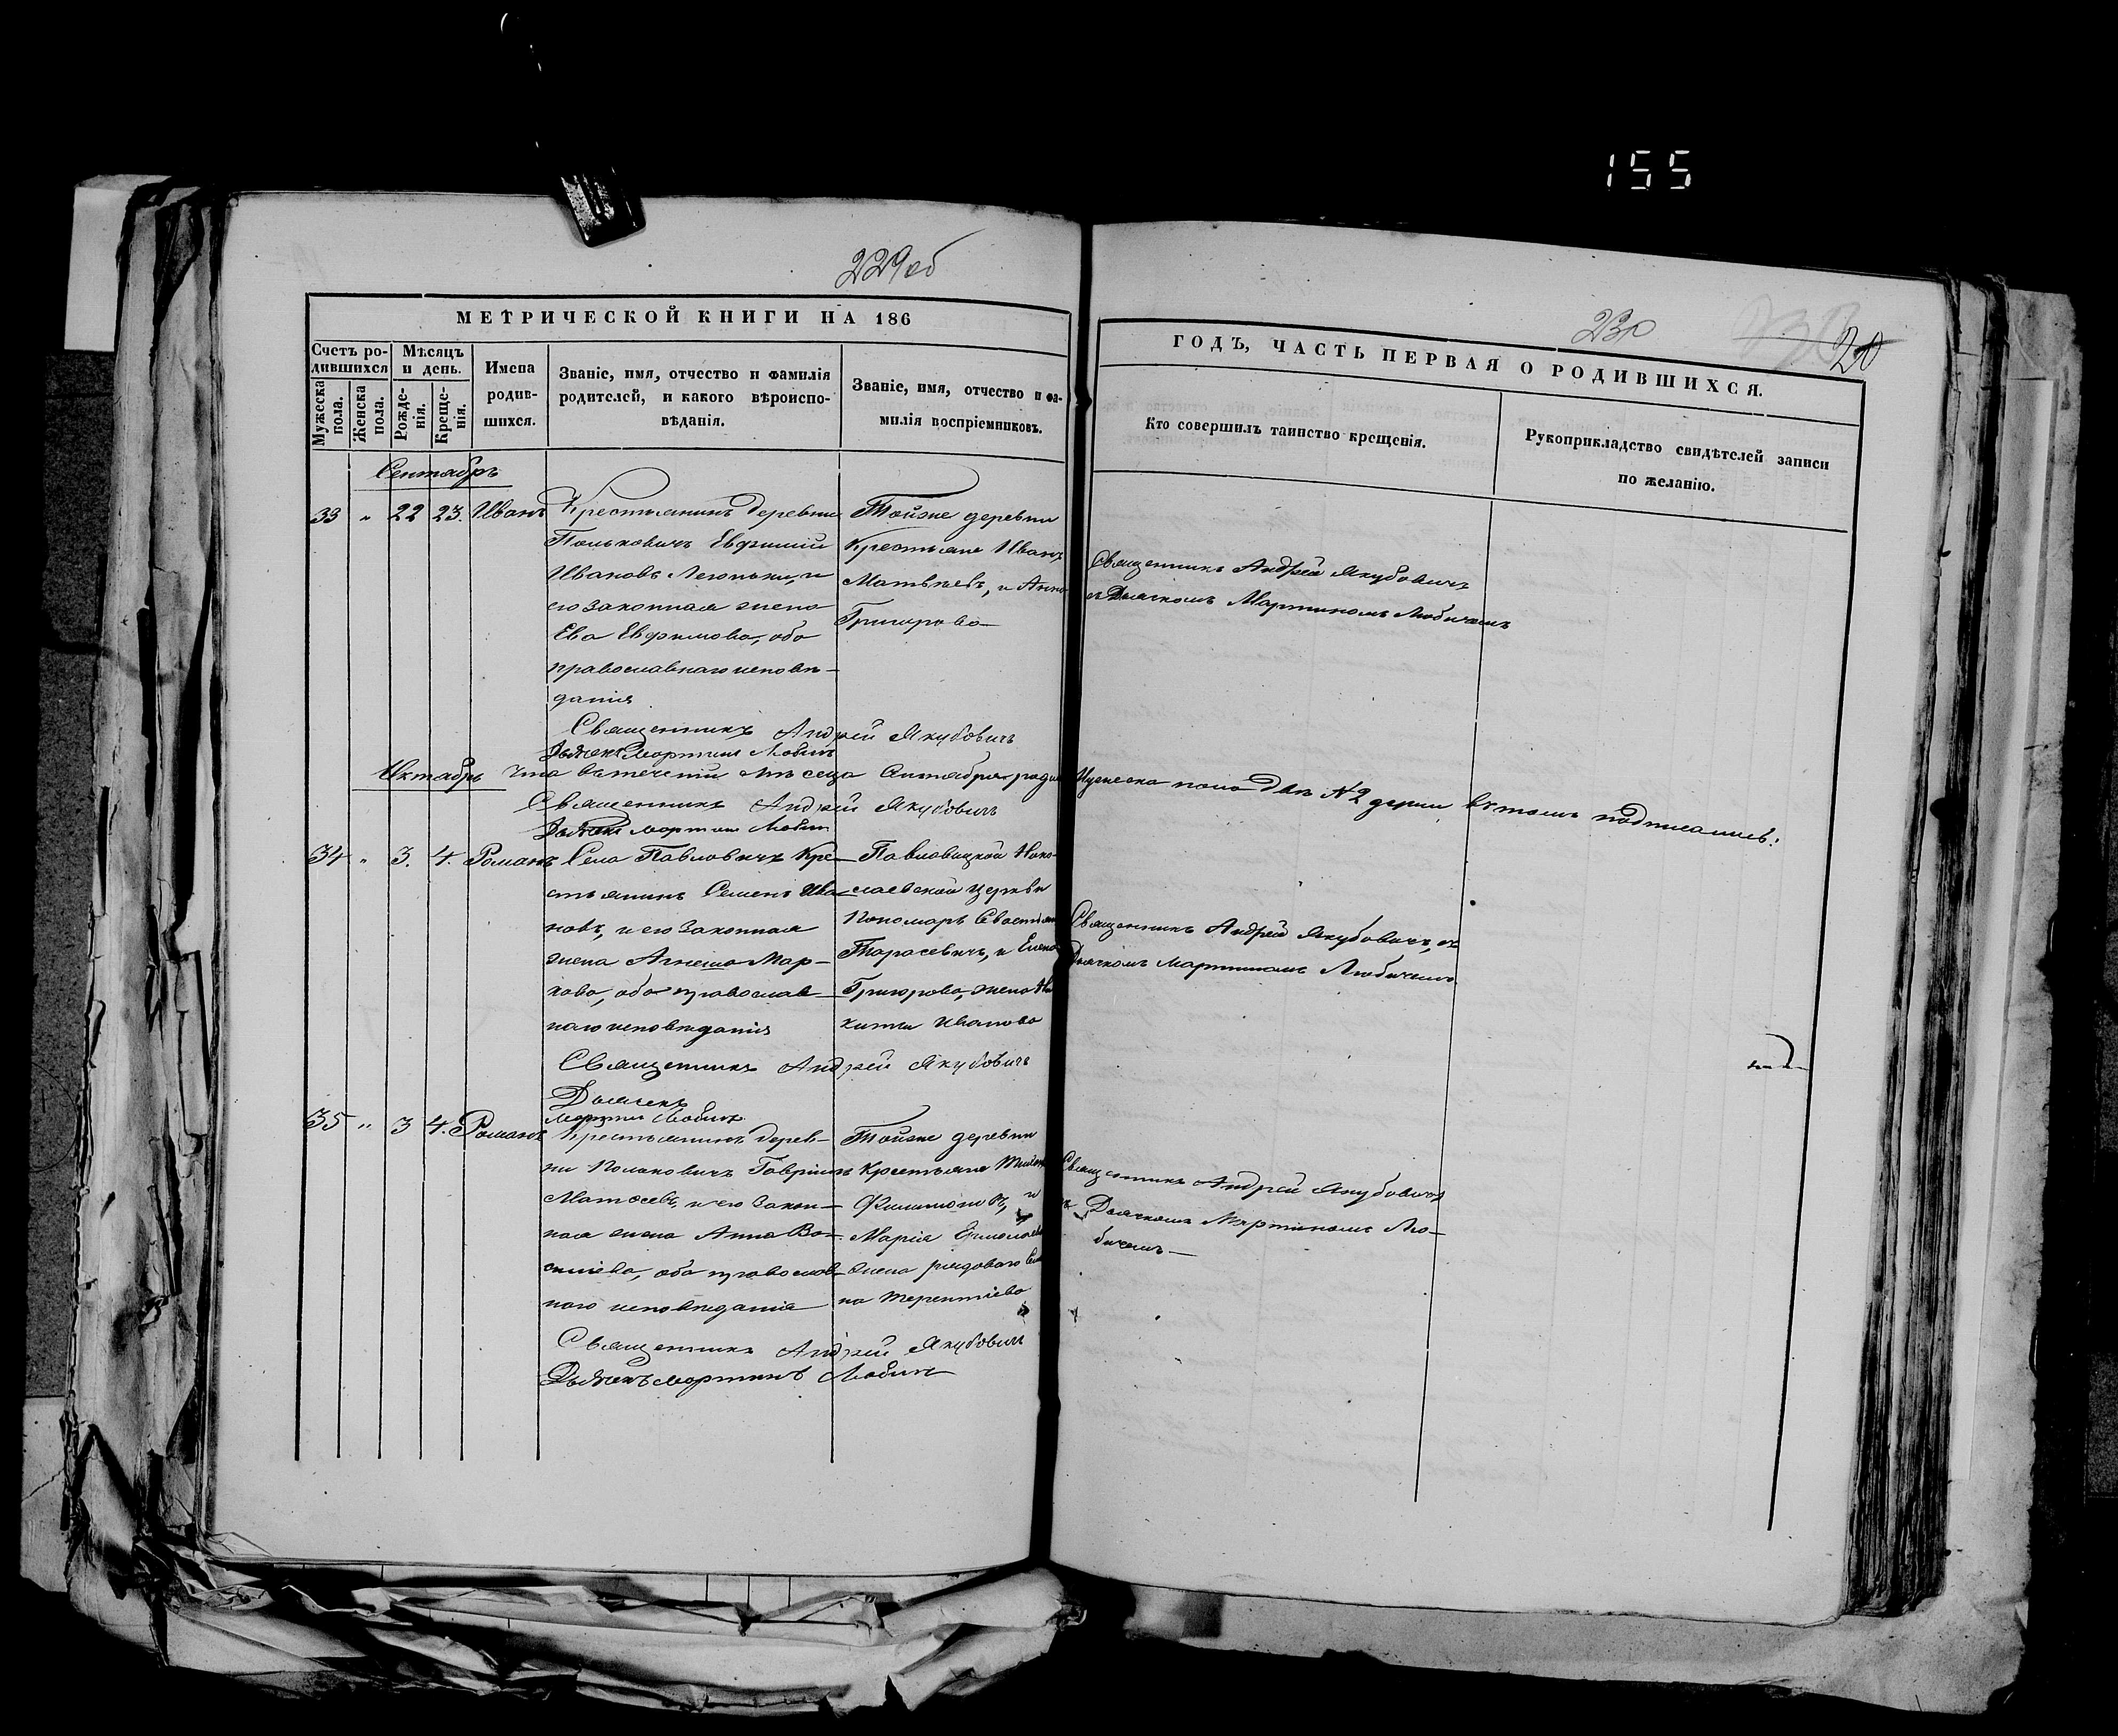 155
229об
МЕТРИЧЕСКОЙ КНИГИ НА 186
Счетъ ро-
дившихся
Мѣсяцъ
и день.
Мужеска
пола.
Женска
пола.
Рожде-
нія.
Креще-
нія.
Имена
родив-
шихся.
Званіе, имя, отчество и фамилія
родителей, и какого вѣроиспо-
вѣданія.
Званіе, имя, отчество и фа-
милія воспріемниковъ.
Сентябрь
33 " 22 23. Иванъ
Крестьянинъ деревни
Польковичъ Евфимій
Ивановъ и
его законная жена
Ева Евфимова, оба
православнаго исповѣ-
данія
Тойже деревни
Крестьяне Иванъ
Матвѣевъ, и Анна
Григорова
Священникъ Андрей Якубовичъ
Дьячекъ Мартинъ Любичъ
Октябрь
Что въ теченіи мѣсяца родил
Священникъ Андрей Якубовичъ
Дьячекъ Мартинъ Любичъ
34 " 3. 4. Романъ
Села Павловичъ Кре-
стьянинъ Семенъ Ива-
новъ, и его законная
жена Агнеша Мар-
кова, оба православ-
наго исповѣданія
Павловицкой Нико-
лаевской Церкви
Пономарь
Тарасевичъ, и Елена
Григорова, жена Ни-
киты Иванова
Священникъ Андрей Якубовичъ
Дьячекъ
Мартинъ Любичъ
35 " 3 4. Романъ
Крестьянинъ дерев-
ни Гавріилъ
и его закон-
ная жена Анна Ва-
силіева, оба православ-
наго исповѣданія
Тойже деревни
Крестьяне
Филимоновъ, и
Марія
жена рядоваго
на Терентіева
Священникъ Андрей Якубовичъ
Дьячекъ Мартинъ Любичъ
230
20
ГОДЪ, ЧАСТЬ ПЕРВАЯ О РОДИВШИХСЯ.
Кто совершилъ таинство крещенія.
Рукоприкладство свидѣтелей записи
по желанію.
Священникъ Андрей Якубовичъ
съ Дьячкомъ Мартиномъ Любичемъ
Мужеска пола два №2 души въ томъ подписались:
Священникъ Андрей Якубовичъ, съ
Дьячкомъ Мартиномъ Любичемъ
Священникъ Андрей Якубовичъ
съ Дьячкомъ Мартиномъ Лю-
бичемъ